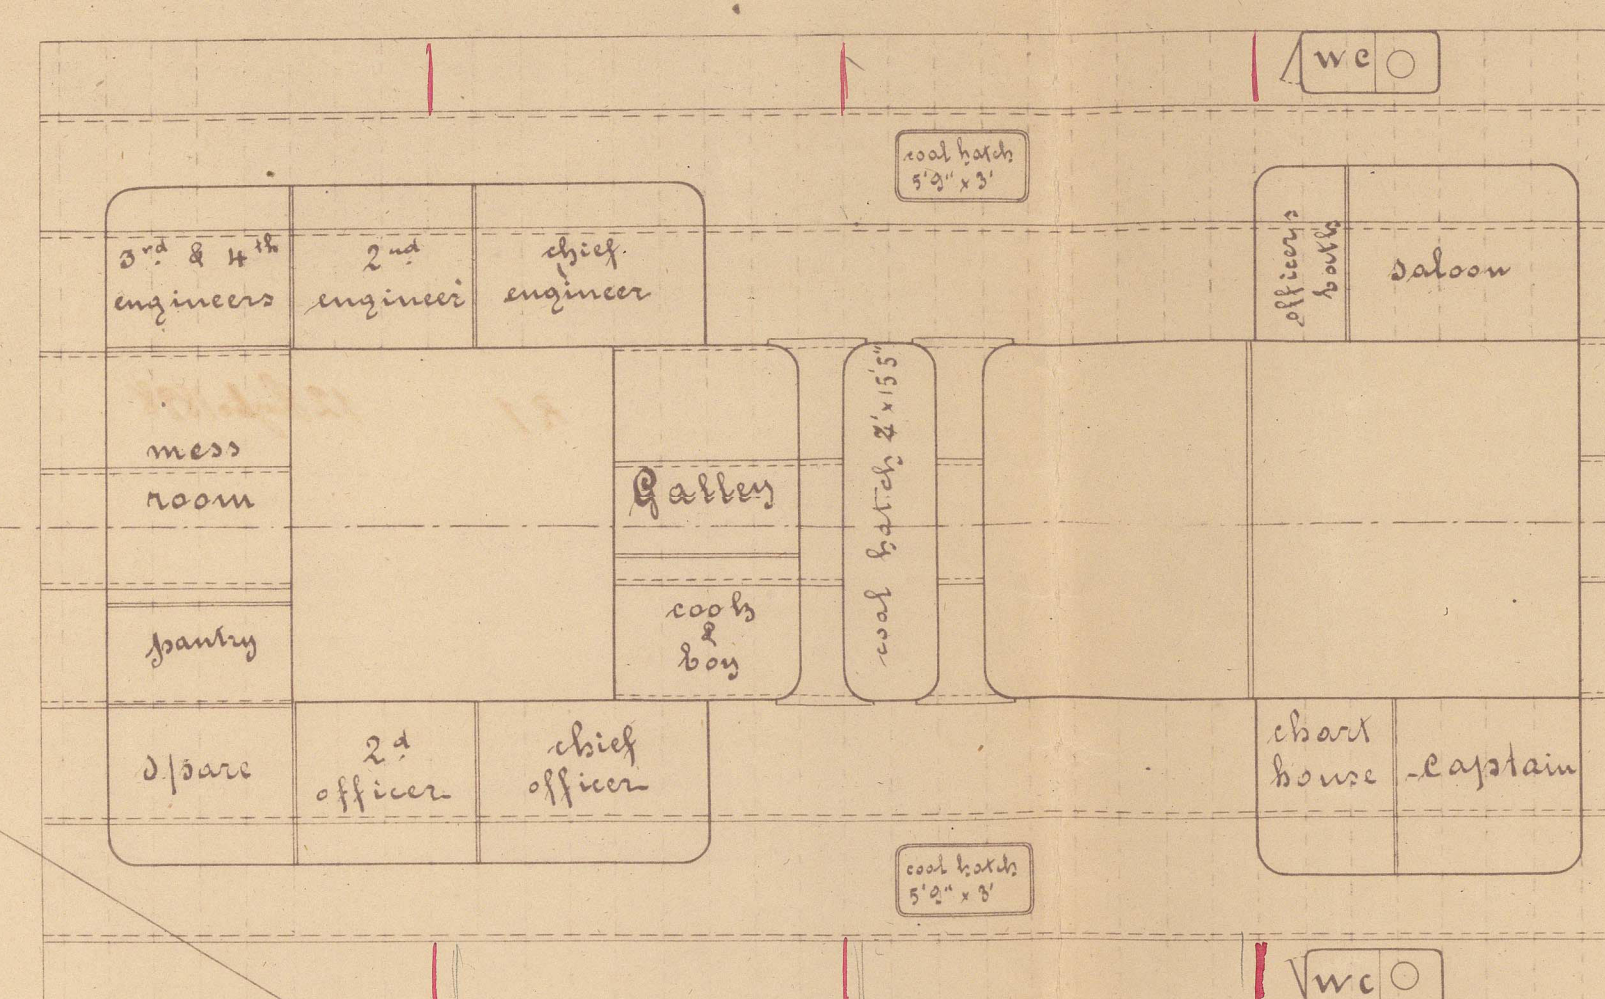 wc
coal hatch
5'9" x 3'
3rd & 4th
engineers
2nd
engineer
chief
engineer
officers
bath
saloon
mess
room
Galley
coal hatch 4' x 15'5"
pantry
cook
&
boy
spare
2d
officer
chief
officer
chart
house
captain
coal hatch
5'9" x 3'
wc